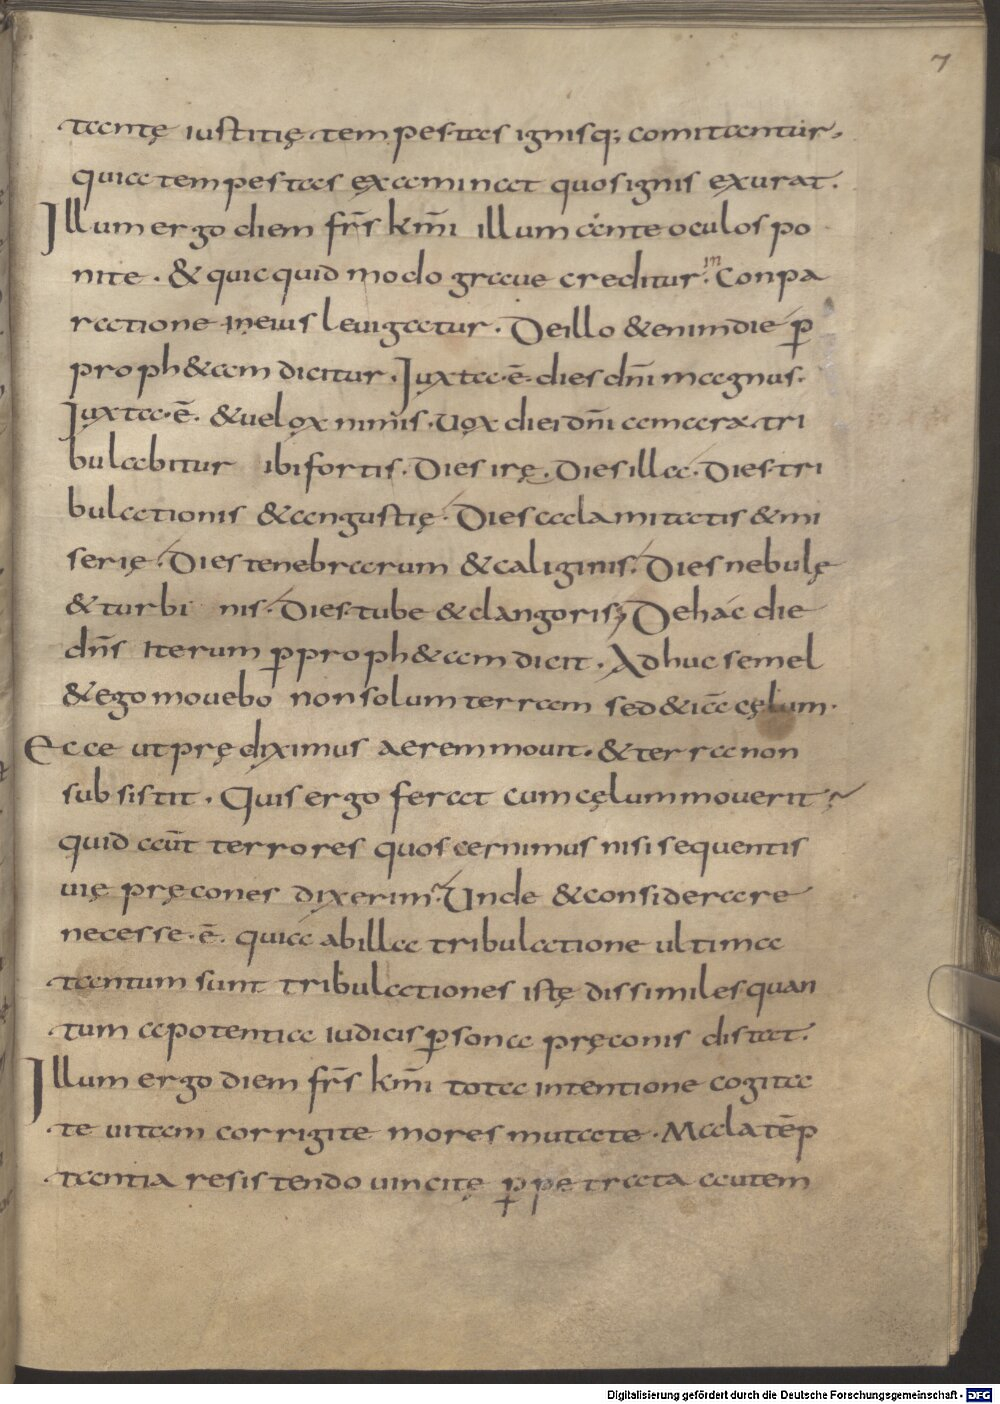 7
tantę iustitię tempestas ignisq; comitantur.
quia tempestas examinat quos ignis exurat.
Illum ergo diem frs̄ km̄i illum ánte oculos po
nite . & quicquid modo graue creditur. in Conpa
ratione eius leuigatur . De illo &enim die p̱
proph&am dicitur . Juxta . ē . dies dn̄i magnus .
Juxta . ē . & uelox nimis . uox diei dn̄i amara tri
bulabitur ibi fortis . Dies irę . Dies illa . Dies tri
bulationis & angustię . Dies calamitatis & mi
serię . Dies tenebrarum & caliginis . Dies nebulę
& turbi nis . Dies tubę & clangoris ; De hác die
dn̄s Iterum p̱ proph&am dicit . Adhuc semel
& ego mouebo non solum terram sed & iā cęlum .
Ecce ut prędiximus aerem mouit . & terra non
subsistit . Quis ergo ferat cum cęlum mouerit ?
quid aūt terrores quos cernimus nisi sequentis
irę pręcones dixerim ? Unde & considerare
necesse . ē . quia ab illa tribulatione ultima
tantum sunt tribulationes istę dissimiles quan
tum a potentia iudicis p̱sona pręconis distat .
Illum ergo diem frs̄ km̄i tota intentione cogita
te uitam corrigite mores mutate . Mala tēp
tantia resistendo uincitę p̱pętrata autem
Digitalisierung gefördert durch die Deutsche Forschungsgemeinschaft - DFG